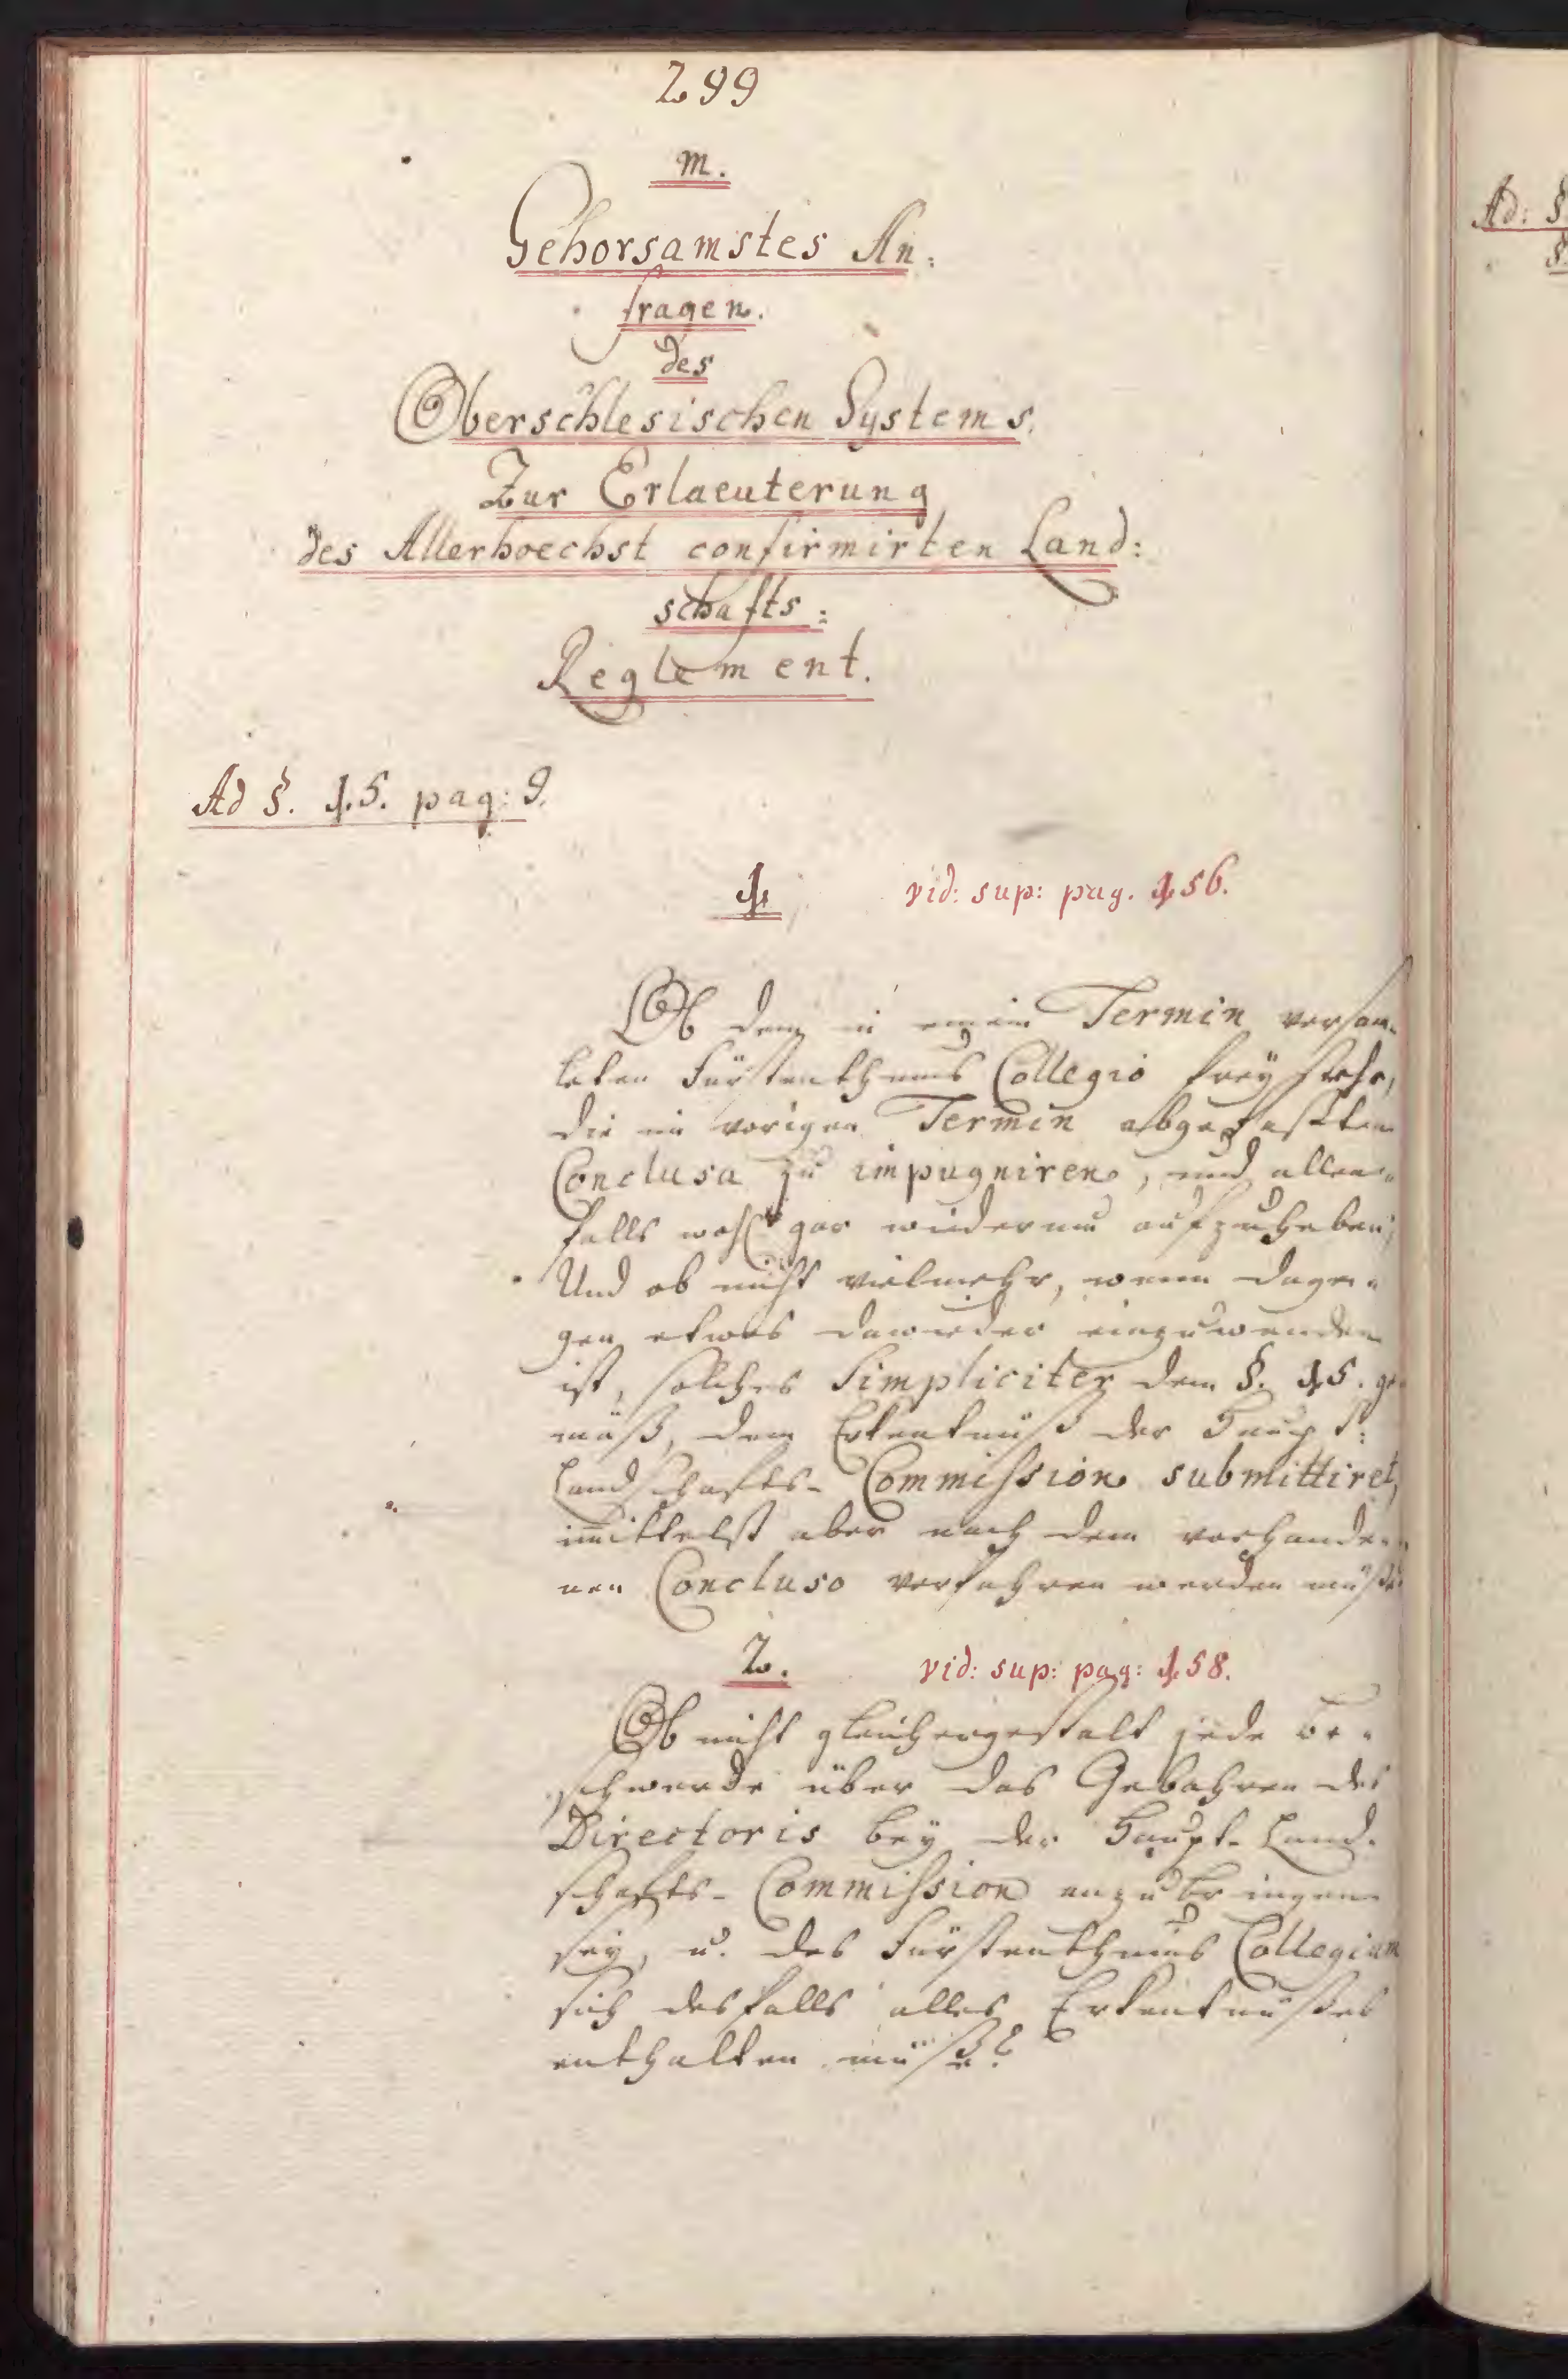 299
m.
Gehorsamstes An:
fragen.
des
Oberschlesischen Systems.
Zur Erlaeuterung
des Allerhoechst confirmirten Land:
schafts:
Reglement.
Ad §. 15. pag: 9.
1. vid: sup: pag. 156.
Ob dem in einem Termin versam-
leten Fürstenthums Collegio freÿ stehe,
die im vorigen Termin abgefaßten
Conclusa zu impugniren, und allen-
falls wohl gar wiederum aufzuheben;
Und ob nicht vielmehr, wenn dage-
gen etwas dawieder einzuwenden
ist, solches Simpliciter dem §. 15. ge-
mäß, dem Erkentnüß der Haupt:
Landschafts- Commission submittiret,
immittelst aber nach dem vorhande-
nen Concluso verfahren werden müße?
2. vid: sup: pag: 158.
Ob nicht gleichergestalt jede Be-
schwerde über das Gebahren des
Directoris beÿ der Haupt- Land-
schafts- Commission anzubringen
seÿ, u. das Fürstenthums Collegium
sich desfalls alles Erkentnüßes
enthalten müße?
Ad: §
§